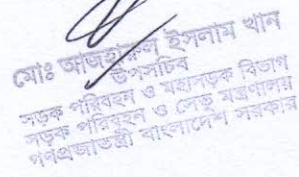 মোঃ আজহারুল ইসলাম খান
উপসচিব
সড়ক পরিবহন ও মহাসড়ক বিভাগ
সড়ক পরিবহন ও সেতু মন্ত্রণালয়
গণপ্রজাতন্ত্রী বাংলাদেশ সরকার